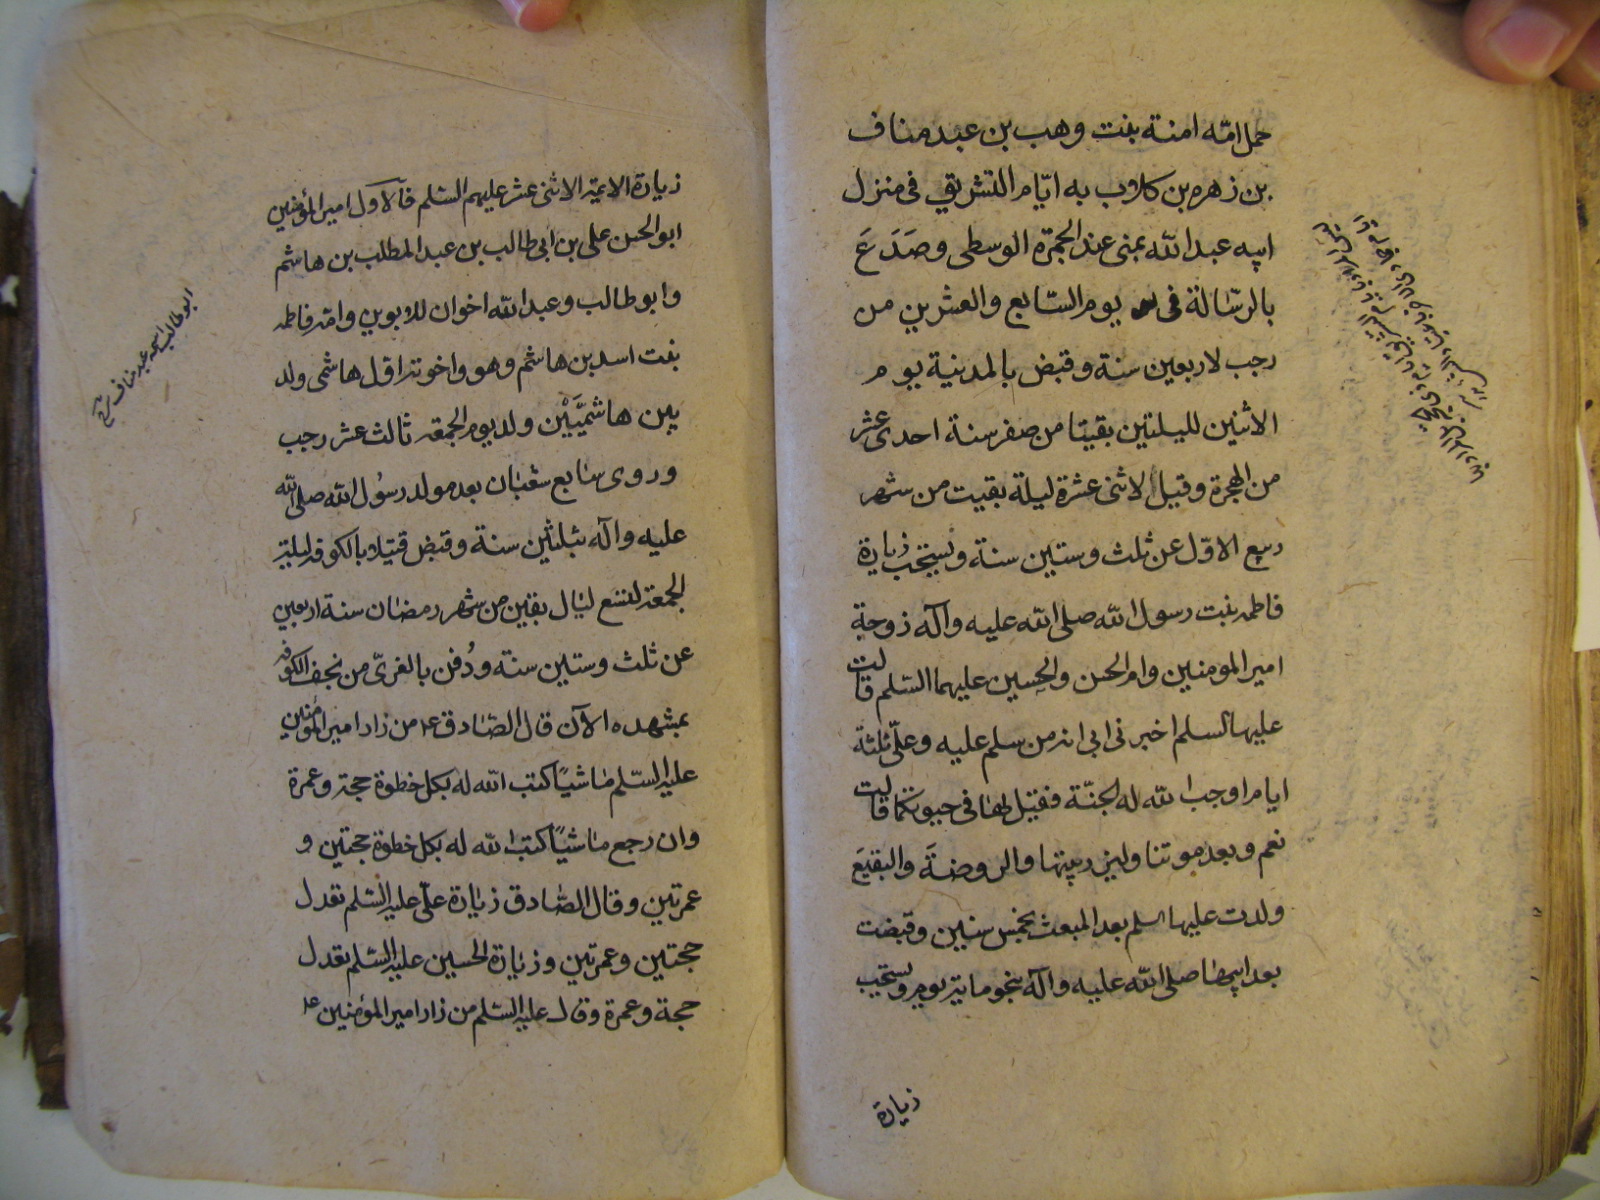 حمل امّه امنة بنت وهب بن عبد مناف
بن زهره بن كلاب به ايّام التشريق فى منزل
ابيه عبد الله بمنى عند الجمرة الوسطى وصَدَعَ
بالرّسالة فى يوم السّابع والعشرين من
رجب لاربعين سنة وقبض بالمدينة يوم
الاثنين لليلتين بقيتا من صفر سنة احدى عشر
من الهجرة وقيل لاثنى عشرة ليلة بقيت من شهر
ربيع الاوّل عن ثلث وستين سنة ويستحب زيارة
فاطمه بنت رسول الله صلى الله عليه وآله زوجة
امير المومنين وام الحسن والحسين عليهما السّلم قالت
عليها السلم اخبرنى ابى انه من سلم عليه وعلىّ ثلثة
ايام اوجب الله له الجنّة فقيل لها فى حيوتكما قالت
نعم وبعد موتنا وليزر بيتها والروضةَ والبقيعَ
ولدت عليها السلم بعد المبعث بخمس سنين وقبضت
بعد ابيها صلى الله عليه وآله بنحو ماية يوم ويستحب
زيارة
زيارة الايمّة الاثنى عشر عليهم السّلم فالاول امير المؤمنين
ابو الحسن على بن ابى طالب بن عبد المطلب بن هاشم
وابو طالب وعبد الله اخوان للابوين وامّه فاطمه
بنت اسد بن هاشم وهو واخوته اوّل هاشمى ولد
بين هاشميَّيْن ولد يوم الجمعه ثالث عشر رجب
وروى سابع شعبان بعد مولد رسُول الله صلى الله
عليه وآله بثلثين سنة وقبض قتيلا بالكوفه ليلة
الجمعة لتسع ليال بقين من شهر رمضان سنة اربعين
عن ثلث وستين سنة ودُفن بالغرىّ من نجف الكوفه
بمشهده الآن قال الصّادق ع من زار امير المؤمنين
عليه السّلم ماشيًا كتب الله له بكل خطوة حجة وعمرة
وان رجع ماشيًا كتب الله له بكل خطوة حجتين و
عمرتين وقال الصّادق زيارة علىّ عليه السّلم تعدل
حجتين وعمرتين وزيارة الحسين عليه السّلم تعدل
حجة وعمرة وقال عليه السّلم من زار امير المؤمنين ع
ابو طالب اسمه عبد مناف